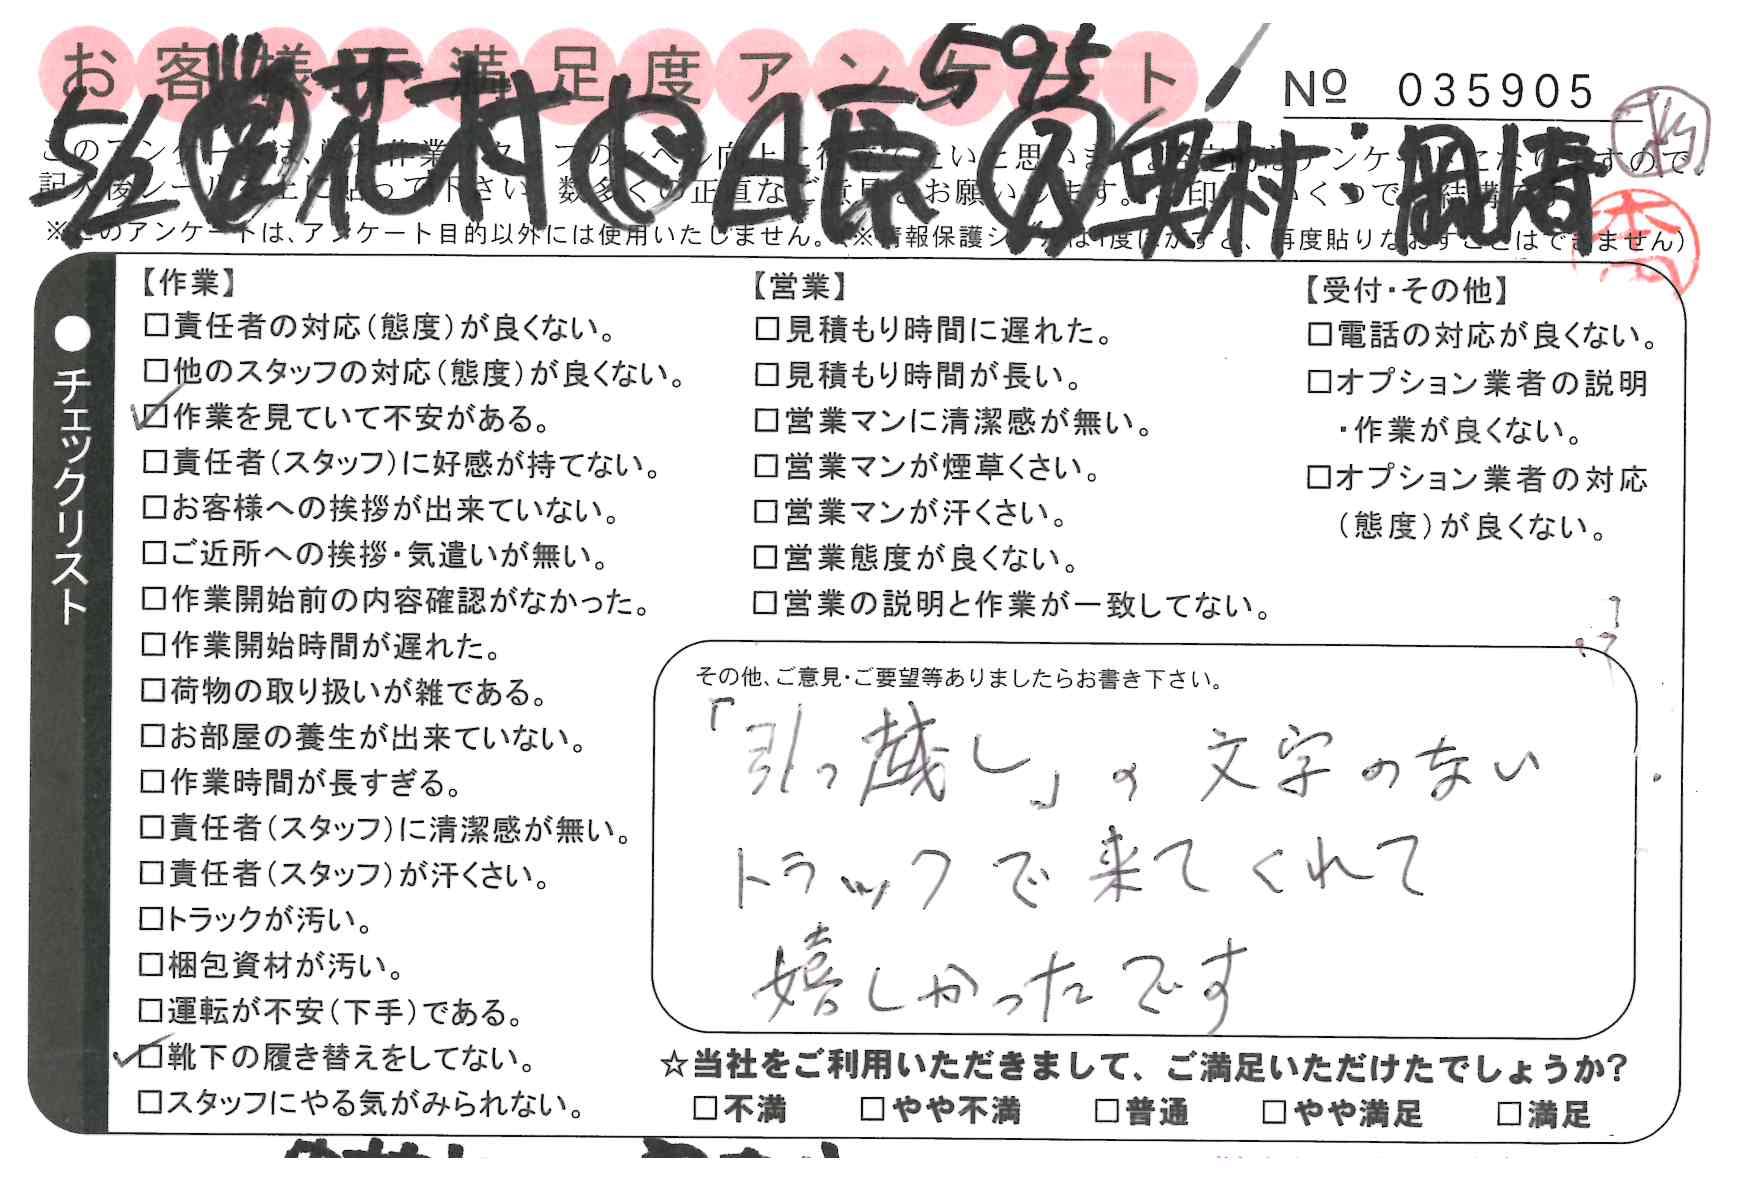 お客様不満足度アンケート
595
№ 035905
5/2 営 花村 ド 白原 人 奥村・剛崎
※このアンケートは、アンケート目的以外には使用いたしません。(※情報保護シールは1度はがすと、再度貼りなおすことはできません)
●チェックリスト
【作業】
□責任者の対応(態度)が良くない。
□他のスタッフの対応(態度)が良くない。
☑作業を見ていて不安がある。
□責任者(スタッフ)に好感が持てない。
□お客様への挨拶が出来ていない。
□ご近所への挨拶・気遣いが無い。
□作業開始前の内容確認がなかった。
□作業開始時間が遅れた。
□荷物の取り扱いが雑である。
□お部屋の養生が出来ていない。
□作業時間が長すぎる。
□責任者(スタッフ)に清潔感が無い。
□責任者(スタッフ)が汗くさい。
□トラックが汚い。
□梱包資材が汚い。
□運転が不安(下手)である。
☑靴下の履き替えをしてない。
□スタッフにやる気がみられない。
【営業】
□見積もり時間に遅れた。
□見積もり時間が長い。
□営業マンに清潔感が無い。
□営業マンが煙草くさい。
□営業マンが汗くさい。
□営業態度が良くない。
□営業の説明と作業が一致してない。
【受付・その他】
□電話の対応が良くない。
□オプション業者の説明
・作業が良くない。
□オプション業者の対応
(態度)が良くない。
その他、ご意見・ご要望等ありましたらお書き下さい。
「引っ越し」の文字のない
トラックで来てくれて
嬉しかったです
☆当社をご利用いただきまして、ご満足いただけたでしょうか?
□不満 □やや不満 □普通 □やや満足 □満足